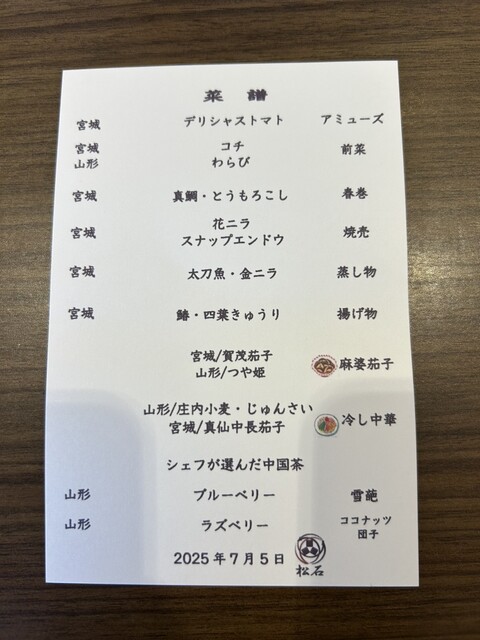 菜譜
宮城 デリシャストマト アミューズ
宮城 コチ 前菜
山形 わらび
宮城 真鯛・とうもろこし 春巻
宮城 花ニラ 焼売
スナップエンドウ
宮城 太刀魚・金ニラ 蒸し物
宮城 鰆・四葉きゅうり 揚げ物
宮城/賀茂茄子 麻婆茄子
山形/つや姫
山形/庄内小麦・じゅんさい 冷し中華
宮城/真仙中長茄子
シェフが選んだ中国茶
山形 ブルーベリー 雪葩
山形 ラズベリー ココナッツ
団子
2025年7月5日 松石